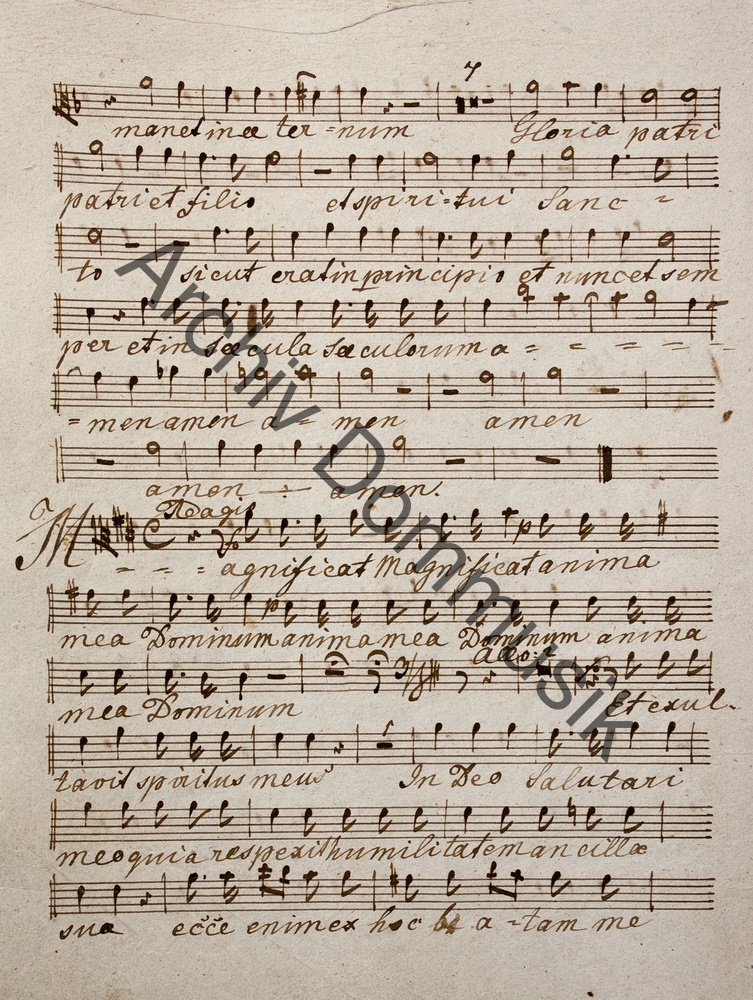 7
manet in æ ter - num Gloria patri
patri et filio et spiri - tui Sanc -
to sicut erat in principio et nunc et sem
per et in sæcula sæculorum a = = = = = =
= men amen a = men amen
amen amen.
Adagio
M = = = agnificat Magnificat anima
mea Dominum anima mea Dominum anima
Allo:
mea Dominum Et exul -
tavit spiritus meus In Deo Salutari
meo quia respexit humilitatem ancillæ
sua ecce enim ex hoc be a - tam me
Archiv Dommusik